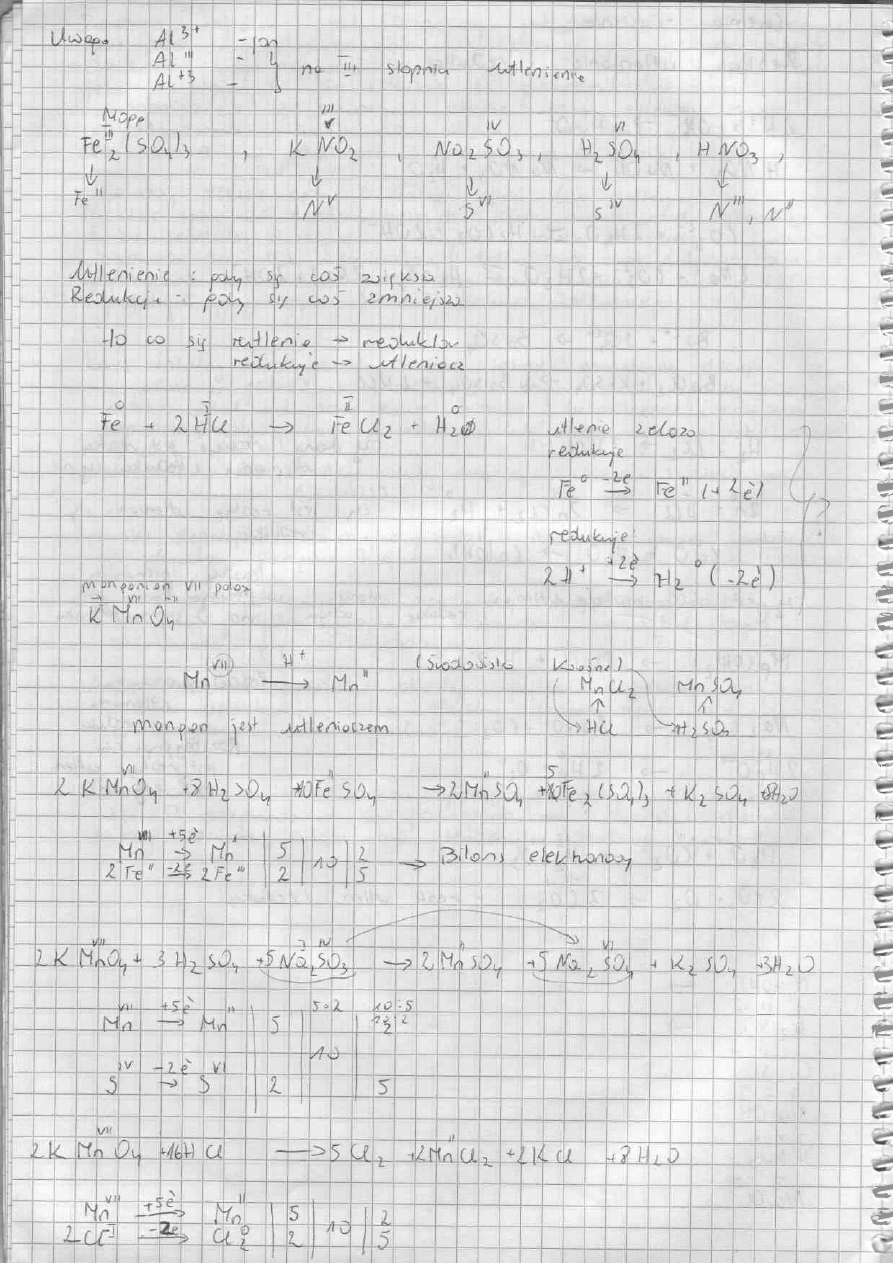 Uwaga Al³⁺ -jon
Alᴵᴵᴵ -
Al⁺³ -
na III stopniu utlenienia
Mogą
Feᴵᴵᴵ₂(SO₄)₃ , K NO₂ , Na₂SO₃ , H₂SO₄ , HNO₃ ,
III IV VI
↓ ↓ ↓ ↓ ↓
Feᴵᴵ Nⱽ Sⱽᴵ Sᴵⱽ Nᴵᴵᴵ, Nᴵᴵ
Utlenienie : gdy się coś zwiększa
Redukcja - gdy się coś zmniejsza
to co się utlenia → reduktor
redukuje → utleniacz
Fe⁰ + 2HᴵCl → FeᴵᴵCl₂ + H₂⁰
utlenia żelazo
redukuje
Fe⁰ -2e→ Feᴵᴵ (+2e)
redukuje
2H⁺ +2e→ H₂⁰ (-2e)
?
manganian VII potas
K Mn O₄
I VII -II
Mnⱽᴵᴵ H⁺→ Mnᴵᴵ (środowisko kwaśne)
MnCl₂ MnSO₄
↑ ↑
HCl H₂SO₄
mangan jest utleniaczem
2 K Mnⱽᴵᴵ O₄ +8H₂SO₄ +10FeᴵᴵSO₄ → 2MnᴵᴵSO₄ +5Fe₂(SO₄)₃ + K₂SO₄ +8H₂O
Mnⱽᴵᴵ +5e→ Mnᴵᴵ | 5 | 10 | 2
2Feᴵᴵ -2e→ 2Feᴵᴵᴵ | 2 | | 5
→ Bilans elektronowy
2K Mnⱽᴵᴵ O₄ + 3H₂SO₄ +5Na₂SᴵⱽO₃ → 2MnᴵᴵSO₄ +5Na₂SⱽᴵO₄ + K₂SO₄ +3H₂O
5·2 10:5
Mnⱽᴵᴵ +5e→ Mnᴵᴵ | 5 | | 2
10
Sᴵⱽ -2e→ Sⱽᴵ | 2 | | 5
2K Mnⱽᴵᴵ O₄ +16HCl → 5Cl₂ +2MnᴵᴵCl₂ +2KCl +8H₂O
Mnⱽᴵᴵ +5e→ Mnᴵᴵ | 5 | 10 | 2
2Cl⁻ᴵ -2e→ Cl₂⁰ | 2 | | 5